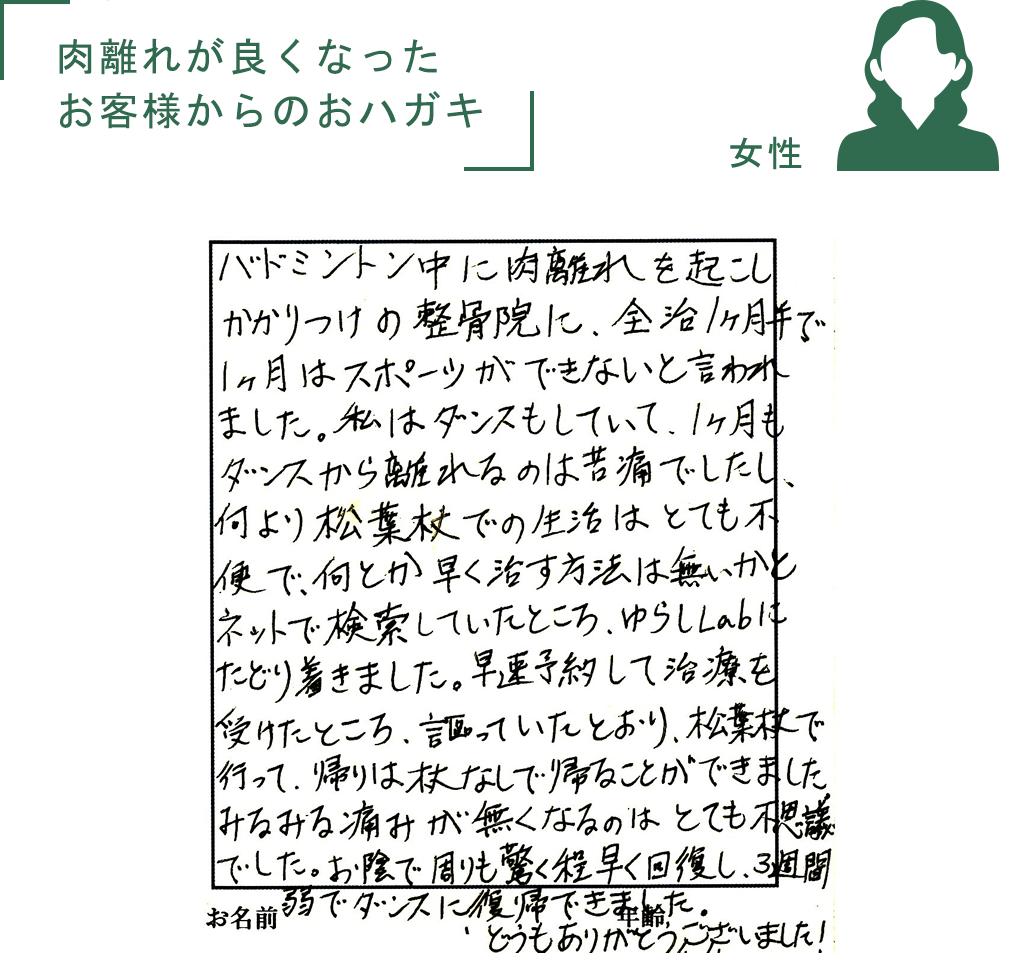 肉離れが良くなった
お客様からのおハガキ
女性
バドミントン中に肉離れを起こし
かかりつけの整骨院に、全治1ヶ月半で
1ヶ月はスポーツができないと言われ
ました。私はダンスもしていて、1ヶ月も
ダンスから離れるのは苦痛でしたし、
何より松葉杖での生活はとても不
便で、何とか早く治す方法は無いかと
ネットで検索していたところ、ゆらしLabに
たどり着きました。早速予約して治療を
受けたところ、謳っていたとおり、松葉杖で
行って、帰りは杖なしで帰ることができました
みるみる痛みが無くなるのはとても不思議
でした。お陰で周りも驚く程早く回復し、3週間
弱でダンスに復帰できました。
お名前
年齢
どうもありがとうございました!